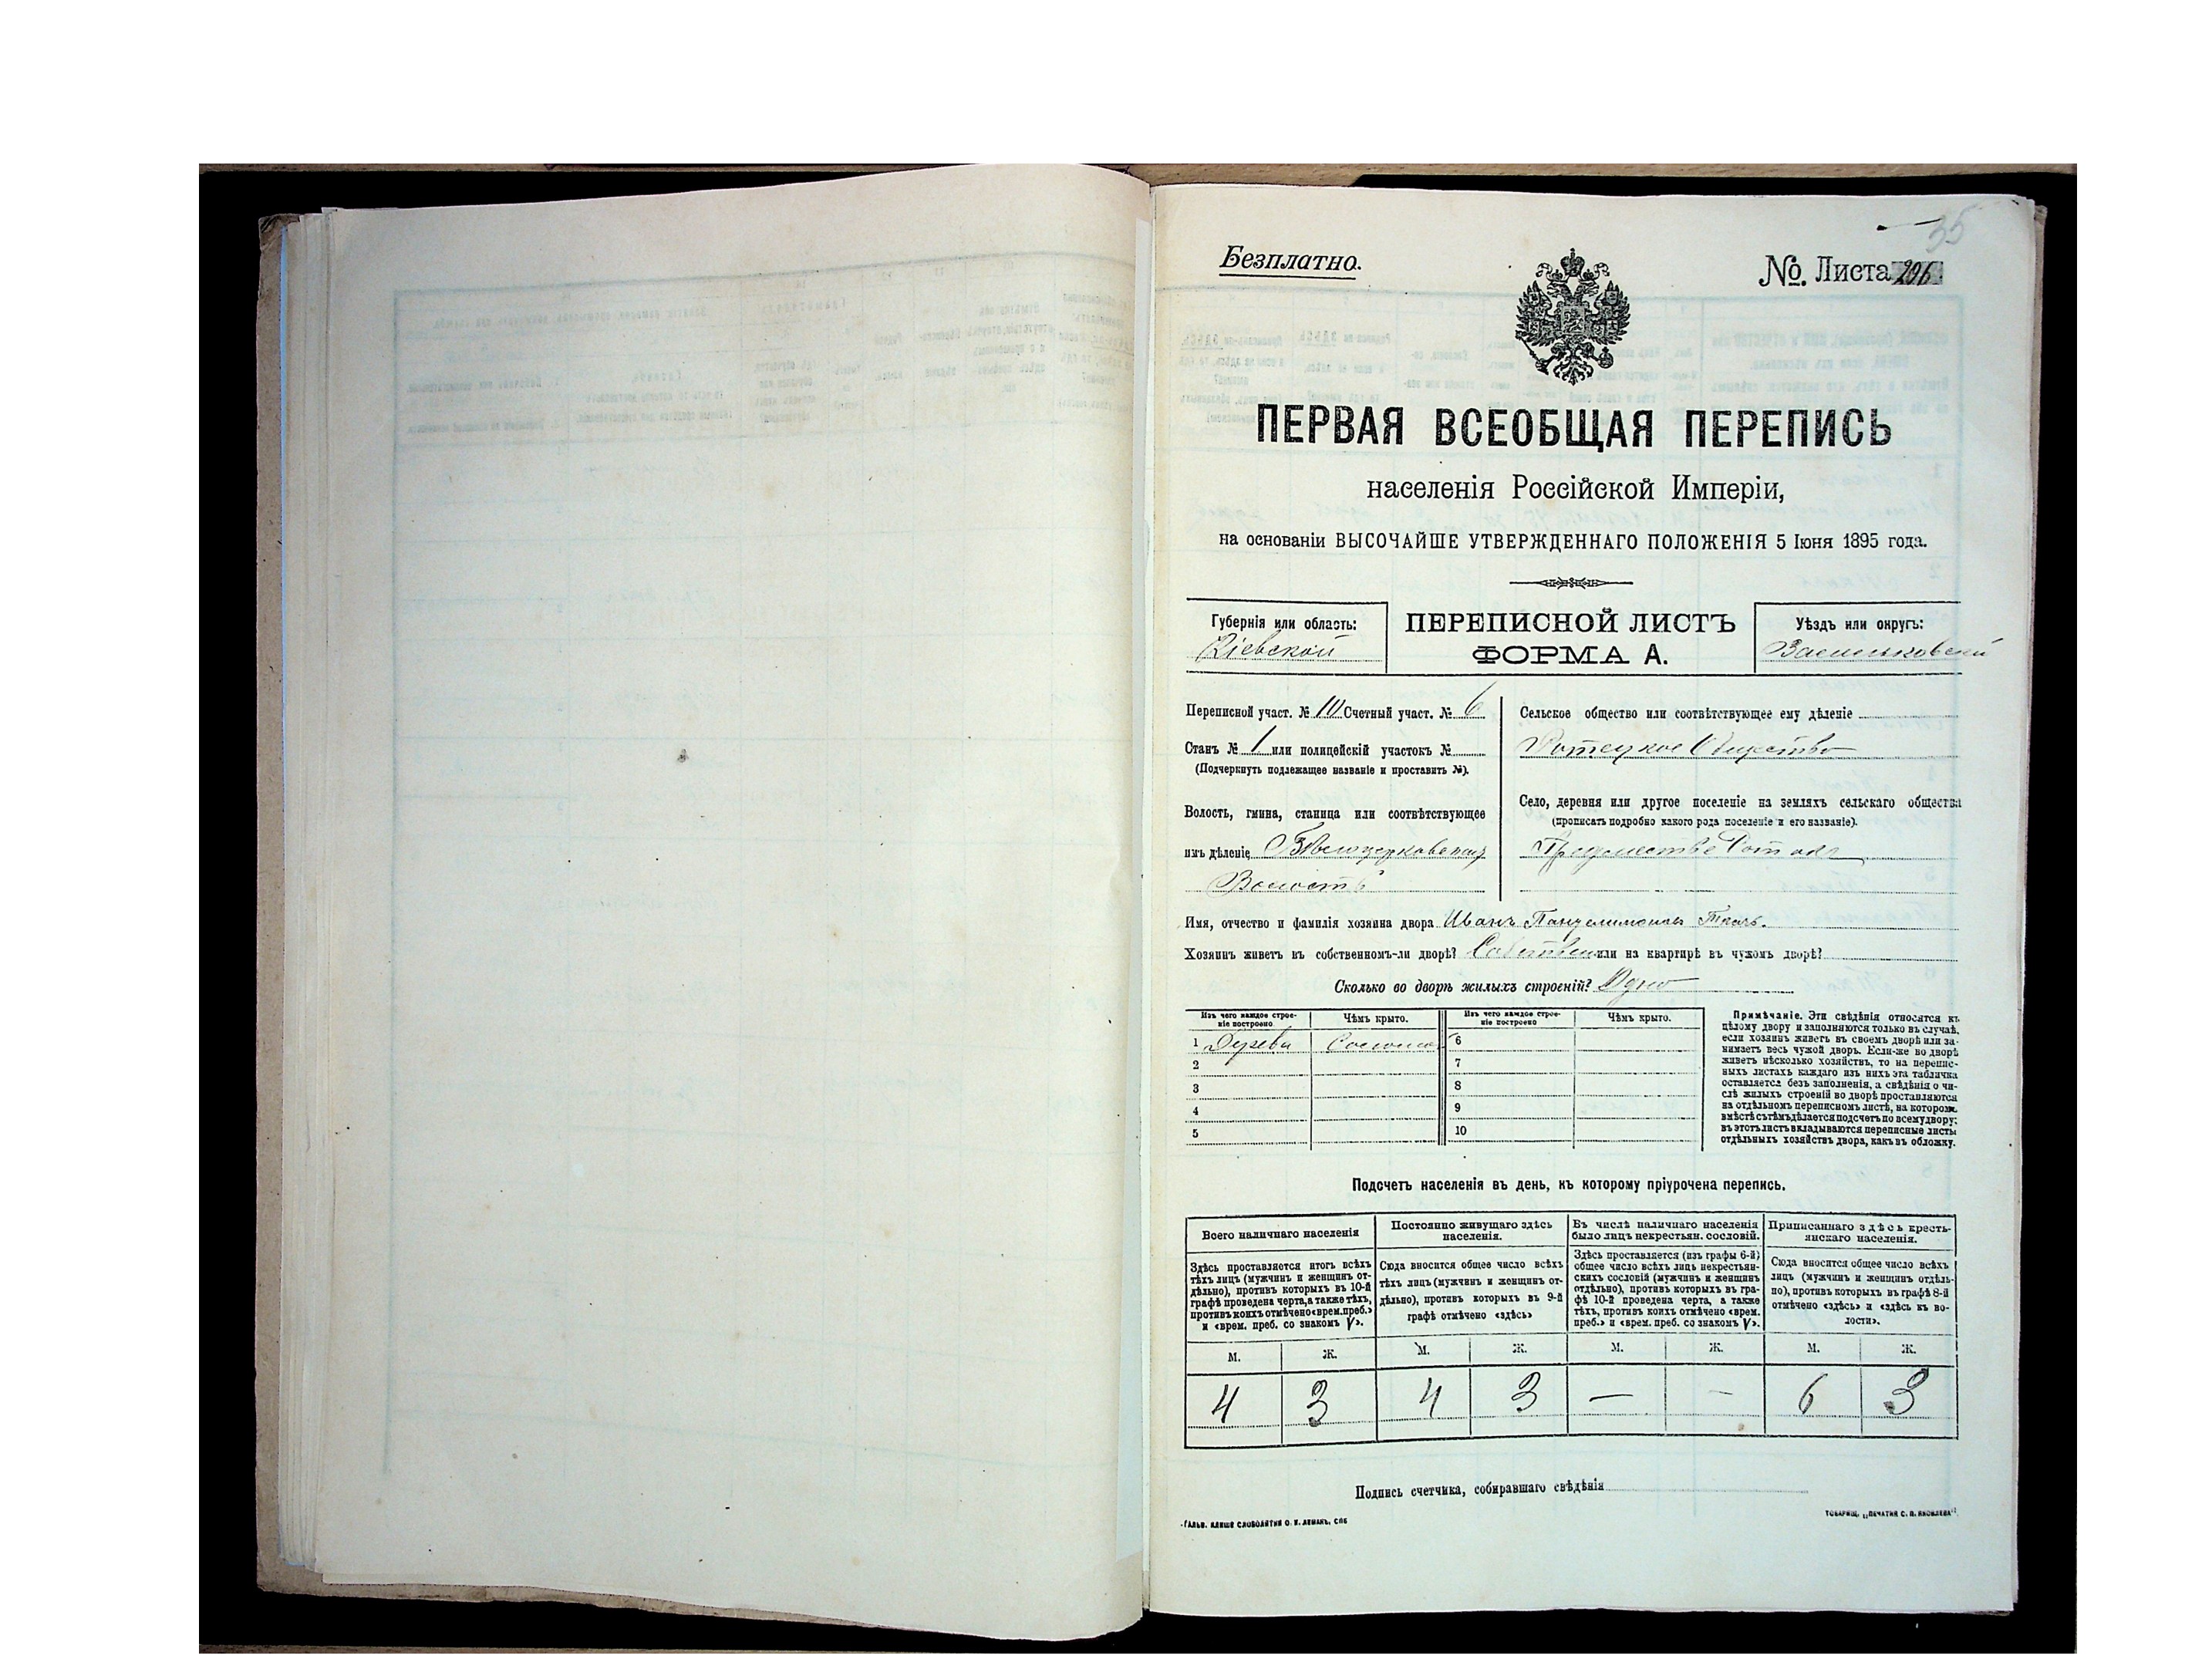 35
Безплатно.
№. Листа 296.
ПЕРВАЯ ВСЕОБЩАЯ ПЕРЕПИСЬ
населенія Россійской Имперіи,
на основаніи ВЫСОЧАЙШЕ УТВЕРЖДЕННАГО ПОЛОЖЕНІЯ 5 Іюня 1895 года.
Губернія или область:
Кіевской
ПЕРЕПИСНОЙ ЛИСТЪ
ФОРМА А.
Уѣздъ или округъ:
Васильковскій
Переписной участ. № 10 Счетный участ. № 6
Станъ № 1 или полицейскій участокъ №
(Подчеркнуть подлежащее названіе и проставить №).
Волость, гмина, станица или соотвѣтствующее
имъ дѣленіе Бѣлоцерковская
Волость
Сельское общество или соотвѣтствующее ему дѣленіе
Ротецкое Общество
Село, деревня или другое поселеніе на земляхъ сельскаго общества
(прописать подробно какого рода поселеніе и его названіе).
Предмѣстье
Имя, отчество и фамилія хозяина двора Иванъ Пантелимоновъ Ткачъ.
Хозяинъ живетъ въ собственномъ-ли дворѣ? Собствен или на квартирѣ въ чужомъ дворѣ?
Сколько во дворѣ жилыхъ строеній? Одно
Изъ чего каждое строе-
ніе построено
Чѣмъ крыто.
Изъ чего каждое строе-
ніе построено
Чѣмъ крыто.
1 Дерева Солома 6
2 7
3 8
4 9
5 10
Примѣчаніе. Эти свѣдѣнія относятся къ
цѣлому двору и заполняются только въ случаѣ,
если хозяинъ живетъ въ своемъ дворѣ или за-
нимаетъ весь чужой дворъ. Если-же во дворѣ
живетъ нѣсколько хозяйствъ, то на перепис-
ныхъ листахъ каждаго изъ нихъ эта табличка
оставляется безъ заполненія, а свѣдѣнія о чи-
слѣ жилыхъ строеній во дворѣ проставляются
на отдѣльномъ переписномъ листѣ, на которомъ
вмѣстѣ съ тѣмъ дѣлается подсчетъ по всему двору;
въ этотъ листъ вкладываются переписные листы
отдѣльныхъ хозяйствъ двора, какъ въ обложку.
Подсчетъ населенія въ день, къ которому пріурочена перепись.
Всего наличнаго населенія
Здѣсь проставляется итогъ всѣхъ
тѣхъ лицъ (мужчинъ и женщинъ от-
дѣльно), противъ которыхъ въ 10-й
графѣ проведена черта, а также тѣхъ,
противъ коихъ отмѣчено «врем. преб.»
и «врем. преб. со знакомъ V».
Постоянно живущаго здѣсь
населенія.
Сюда вносится общее число всѣхъ
тѣхъ лицъ (мужчинъ и женщинъ от-
дѣльно), противъ которыхъ въ 9-й
графѣ отмѣчено «здѣсь»
Въ числѣ наличнаго населенія
было лицъ некрестьян. сословій.
Здѣсь проставляется (изъ графы 6-й)
общее число всѣхъ лицъ некрестьян-
скихъ сословій (мужчинъ и женщинъ
отдѣльно), противъ которыхъ въ гра-
фѣ 10-й проведена черта, а также
тѣхъ, противъ коихъ отмѣчено «врем.
преб.» и «врем. преб. со знакомъ V».
Приписаннаго здѣсь кресть-
янскаго населенія.
Сюда вносится общее число всѣхъ
лицъ (мужчинъ и женщинъ отдѣль-
но), противъ которыхъ въ графѣ 8-й
отмѣчено «здѣсь» и «здѣсь къ во-
лости».
М. Ж. М. Ж. М. Ж. М. Ж.
4 3 4 3 — — 6 3
Подпись счетчика, собиравшаго свѣдѣнія
ГАЛЬВ. КЛИШЕ СЛОВОЛИТНИ О. И. ЛЕМАНЪ, СПБ
ТОВАРИЩ. „ПЕЧАТНЯ С. П. ЯКОВЛЕВА"